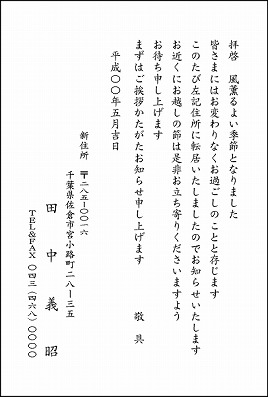 拝啓　風薫るよい季節となりました
皆さまにはお変わりなくお過ごしのことと存じます
このたび左記住所に転居いたしましたのでお知らせいたします
お近くにお越しの節は是非お立ち寄りくださいますよう
お待ち申し上げます
まずはご挨拶かたがたお知らせ申し上げます
敬具
平成〇〇年五月吉日
新住所
〒二八五-〇〇一六
千葉県佐倉市宮小路町二八-三五
田中義昭
TEL&FAX 〇四三(四六八)〇〇〇〇